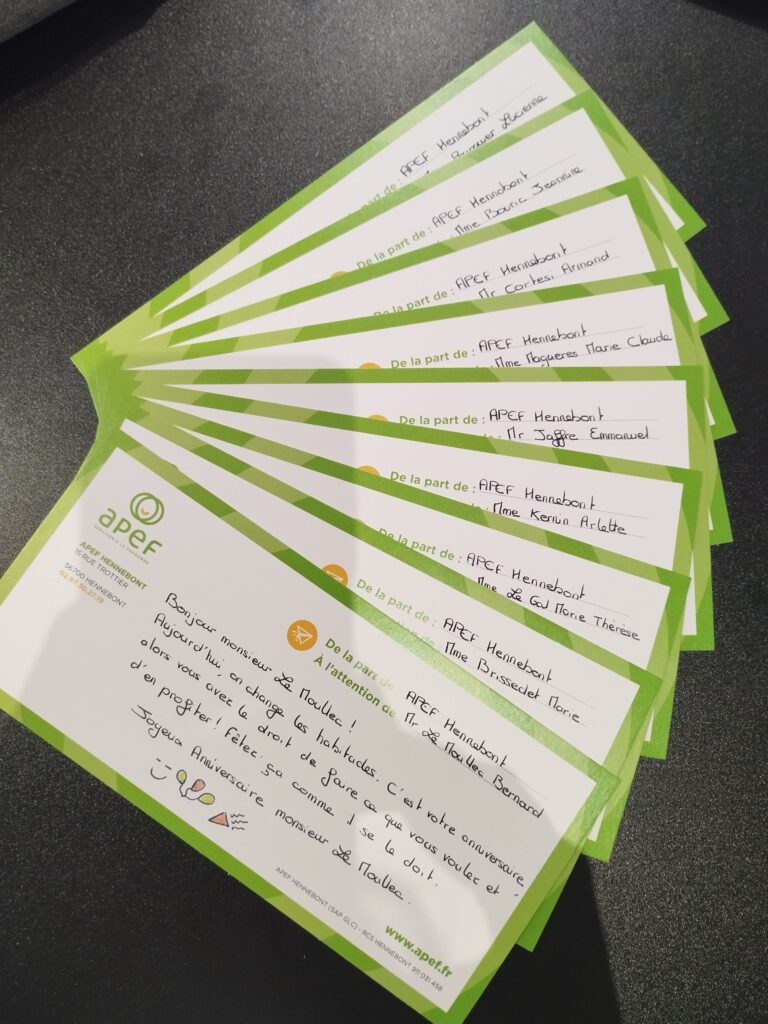 APEF Hennebont
Lucienne
De la part de : APEF Hennebont
Mme Bouric Jeannine
De la part de : APEF Hennebont
Mr Cortesi Armand
De la part de : APEF Hennebont
Mme Magueres Marie Claude
De la part de : APEF Hennebont
Mr Jaffre Emmanuel
De la part de : APEF Hennebont
Mme Kerrin Arlette
De la part de : APEF Hennebont
Mme Le Gal Marie Thérèse
De la part de : APEF Hennebont
Mme Brissedet Marie
apef
SERVICES À LA PERSONNE
APEF HENNEBONT
15 RUE TROTTIER
56700 HENNEBONT
02.97.30.27.19
De la part de APEF Hennebont
À l'attention de Mr Le Moullec Bernard
Bonjour monsieur Le Moullec !
Aujourd'hui, on change les habitudes. C'est votre anniversaire,
alors vous avez le droit de faire ce que vous voulez et
d'en profiter ! Fêtez ça comme il se le doit.
Joyeux Anniversaire monsieur Le Moullec.
www.apef.fr
APEF HENNEBONT (SAP 0LC) - RCS HENNEBONT 911 031 458